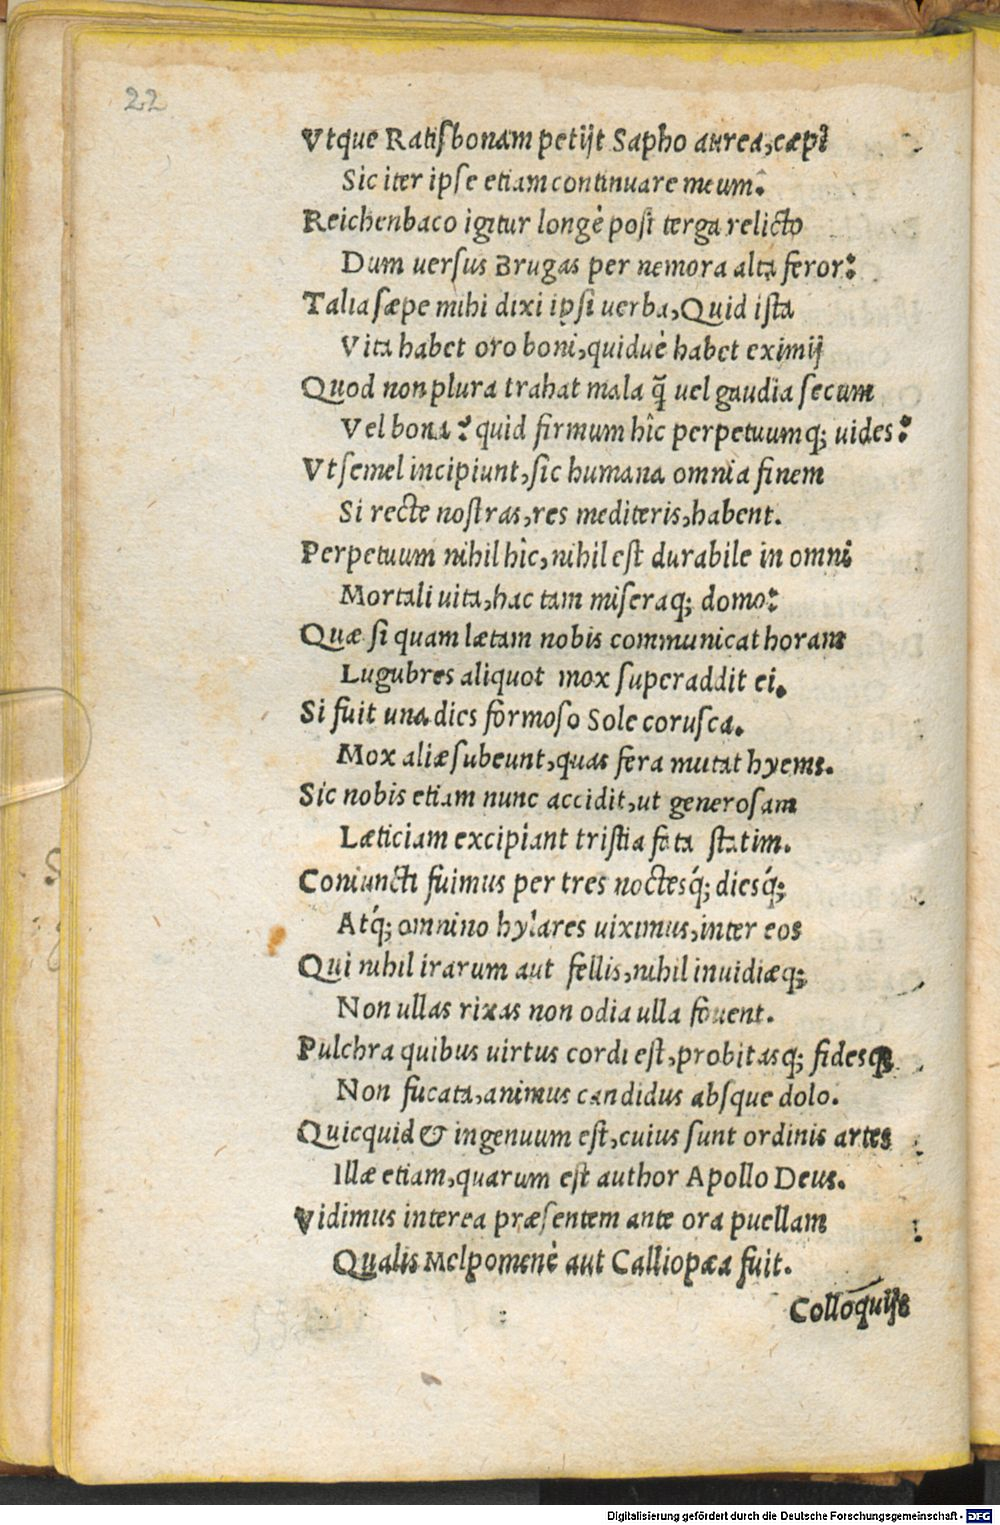 22
Vtque Ratisbonam petijt Sapho aurea, cæpi
Sic iter ipse etiam continuare meum.
Reichenbaco igitur longè post terga relicto
Dum uersus Brugas per nemora alta feror:
Talia sæpe mihi dixi ipsi uerba, Quid ista
Vita habet oro boni, quiduè habet eximij
Quod non plura trahat mala q̃ uel gaudia secum
Vel bona? quid firmum hîc perpetuumq; uides?
Vt semel incipiunt, sic humana omnia finem
Si recte nostras, res mediteris, habent.
Perpetuum nihil hîc, nihil est durabile in omni
Mortali uita, hac tam miseraq; domo:
Quæ si quam lætam nobis communicat horam
Lugubres aliquot mox superaddit ei.
Si fuit una dies formoso Sole corusca.
Mox aliæ subeunt, quas fera mutat hyems.
Sic nobis etiam nunc accidit, ut generosam
Læticiam excipiant tristia fata statim.
Coniuncti fuimus per tres noctesq́; diesq́;
Atq́; omnino hylares uiximus, inter eos
Qui nihil irarum aut fellis, nihil inuidiæq;
Non ullas rixas non odia ulla fouent.
Pulchra quibus uirtus cordi est, probitasq; fidesq;
Non fucata, animus candidus absque dolo.
Quicquid & ingenuum est, cuius sunt ordinis artes
Illæ etiam, quarum est author Apollo Deus.
Vidimus interea præsentem ante ora puellam
Qualis Melpomenè aut Calliopæa fuit.
Colloquijs
Digitalisierung gefördert durch die Deutsche Forschungsgemeinschaft - DFG